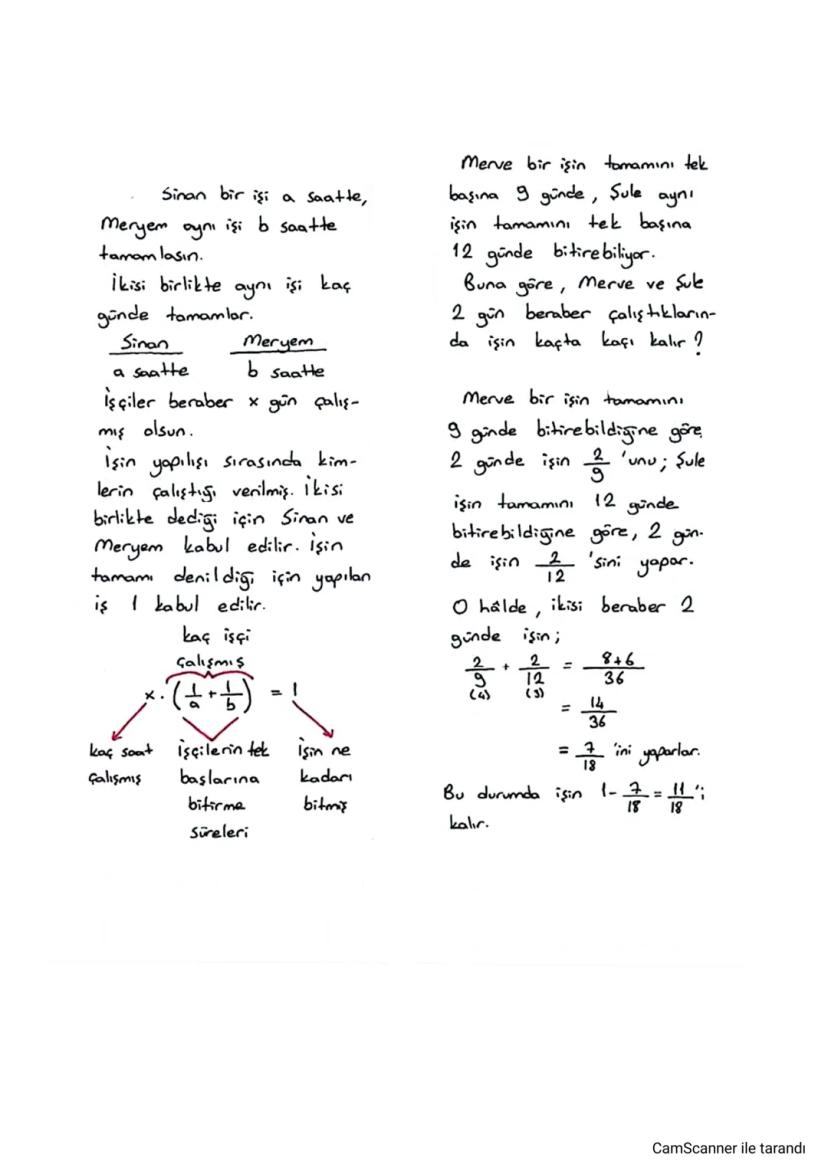 Sinan bir işi a saatte,
Meryem aynı işi b saatte
tamamlasın.
İkisi birlikte aynı işi kaç
günde tamamlar.
Sinan Meryem
a saatte b saatte
İşçiler beraber x gün çalış-
mış olsun.
İşin yapılışı sırasında kim-
lerin çalıştığı verilmiş. İkisi
birlikte dediği için Sinan ve
Meryem kabul edilir. İşin
tamamı denildiği için yapılan
iş 1 kabul edilir.
kaç işçi
çalışmış
x . (1/a + 1/b) = 1
kaç saat işçilerin tek işin ne
çalışmış başlarına kadarı
bitirme bitmiş
süreleri
Merve bir işin tamamını tek
başına 9 günde, Şule aynı
işin tamamını tek başına
12 günde bitirebiliyor.
Buna göre, Merve ve Şule
2 gün beraber çalıştıkların-
da işin kaçta kaçı kalır?
Merve bir işin tamamını
9 günde bitirebildiğine göre,
2 günde işin 2/9 'unu; Şule
işin tamamını 12 günde
bitirebildiğine göre, 2 gün-
de işin 2/12 'sini yapar.
O hâlde, ikisi beraber 2
günde işin;
2/9 + 2/12 = 8+6/36
(4) (3)
= 14/36
= 7/18 'ini yaparlar.
Bu durumda işin 1 - 7/18 = 11/18 'i
kalır.
CamScanner ile tarandı